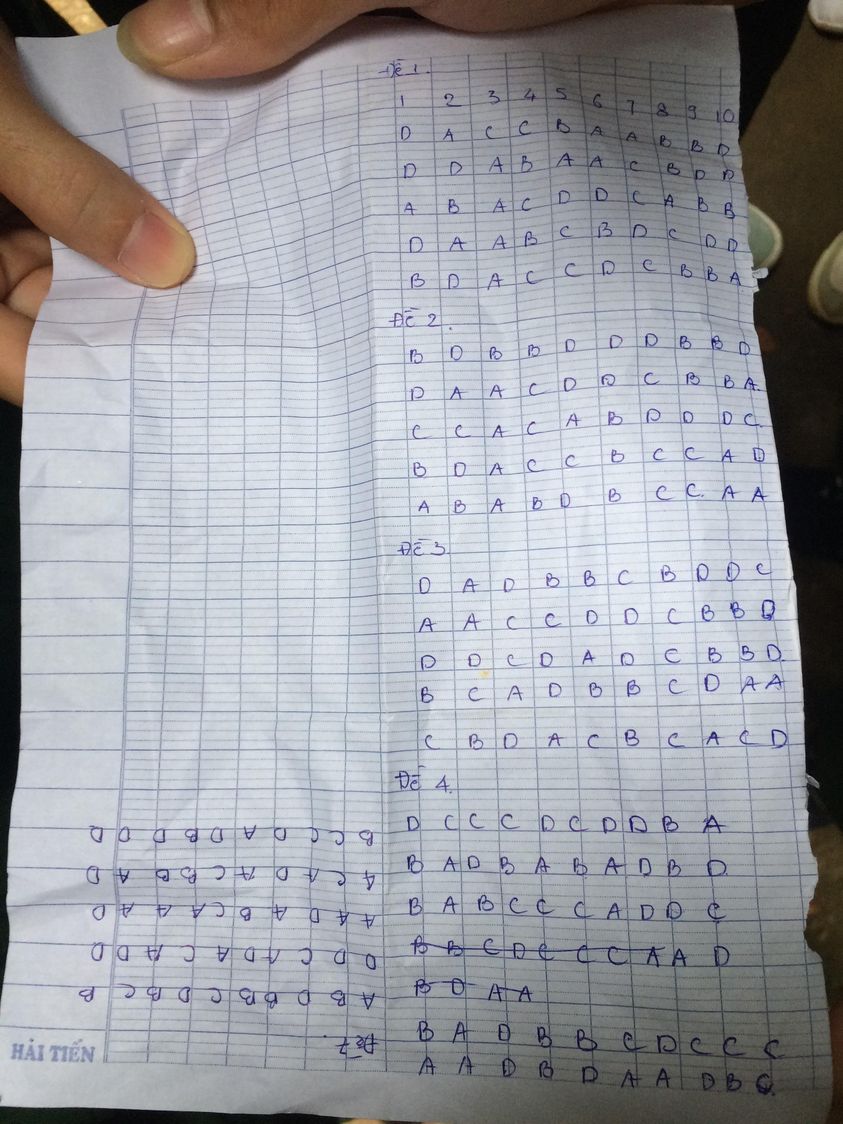 Đề 1.
1 2 3 4 5 6 7 8 9 10
D A C C B A A B B D
D D A B A A C B D D
A B A C D D C A B B
D A A B C B D C D D
B D A C C D C B B A
Đề 2.
B D B B D D D B B D
D A A C D D C B B A.
C C A C A B D D D C.
B D A C C B C C A D
A B A B D B C C. A A
Đề 3
D A D B B C B D D C
A A C C D D C B B D
D D C D A D C B B D.
B C A D B B C D A A
C B D A C B C A C D
Đề 4.
D C C C D C D D B A
B A D B A B A D B D
B A B C C C A D D C
B B C D C C C A A D
B D A A
B A D B B C D C C C
A A D B D A A D B C.
Đề 7.
A B D B B C D B C B
D D C A D A C A D D
A A D A B C A A A D
A C A D A C B B A D
B C C D A D B D D D
HẢI TIẾN